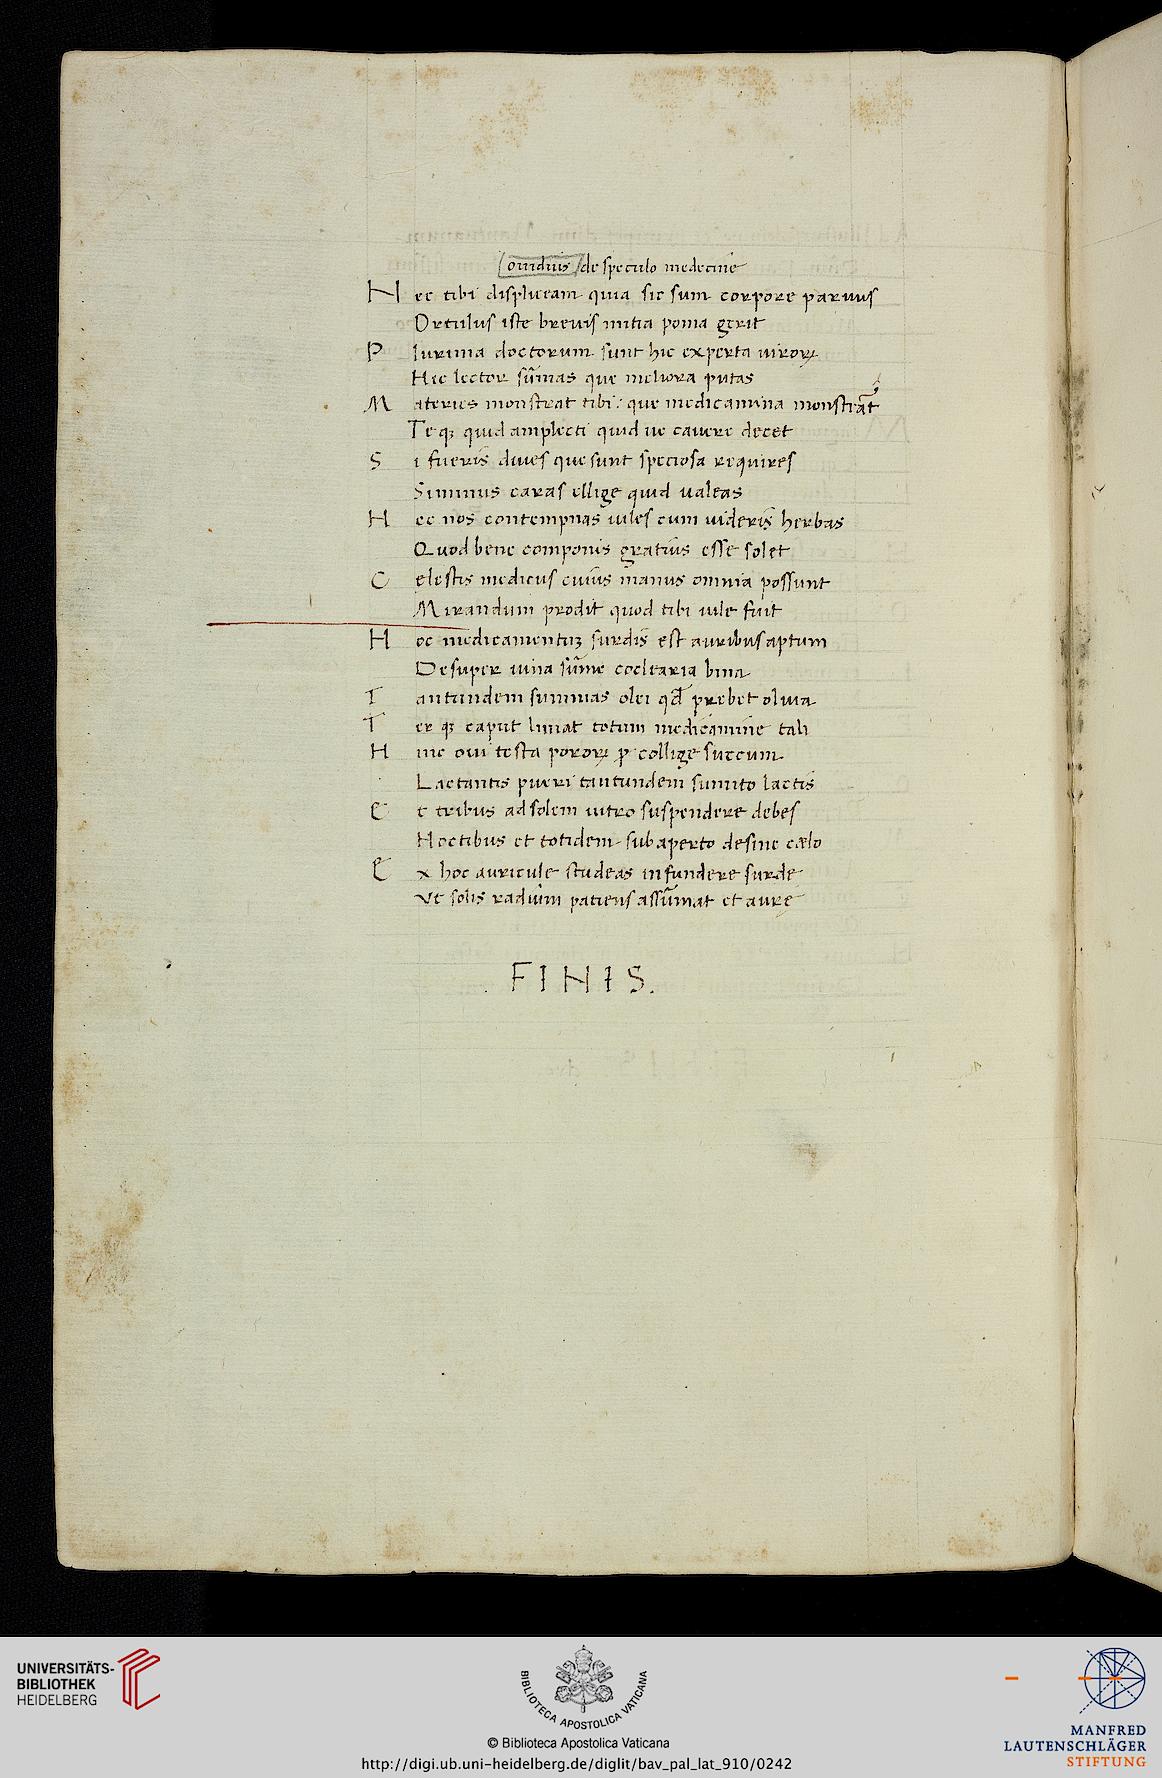 ouidius de speculo medecine
Nec tibi displiceam quia sic sum corpore paruus
Ortulus iste breuis mitia poma gerit
Plurima doctorum sunt hic experta uiroꝝ
Hic lector sūmas que meliora putas
Materies monstrat tibi: que medicamina monstrat
Teqꝫ quid amplecti quid ue cauere decet
Si fueris diues que sunt speciosa requires
Sinnus caras ellige quid ualeas
Nec nos contempnas uiles cum uideris herbas
Quod bene componis gratius esse solet
Celestis medicus cuius manus omnia possunt
Mirandum prodit quod tibi uile fuit
Hoc medicamentuꝫ surdis est auribus aptum
Desuper uina sūme coclearia bina
Tantundem summas olei qđ prebet oliua
Ter qꝫ caput liniat totum medicamine tali
Hinc oui testa pororꝝ p collige succum
Lactantis pueri tantundem sumito lactis
Et tribus ad solem uitro suspendere debes
Noctibus et totidem sub aperto desine cælo
Ex hoc auricule studeas infundere surde
Vt solis radium patiens assūmat et aurę
FINIS.
UNIVERSITÄTS-
BIBLIOTHEK
HEIDELBERG
BIBLIOTECA APOSTOLICA VATICANA
© Biblioteca Apostolica Vaticana
http://digi.ub.uni-heidelberg.de/diglit/bav_pal_lat_910/0242
MANFRED
LAUTENSCHLÄGER
STIFTUNG